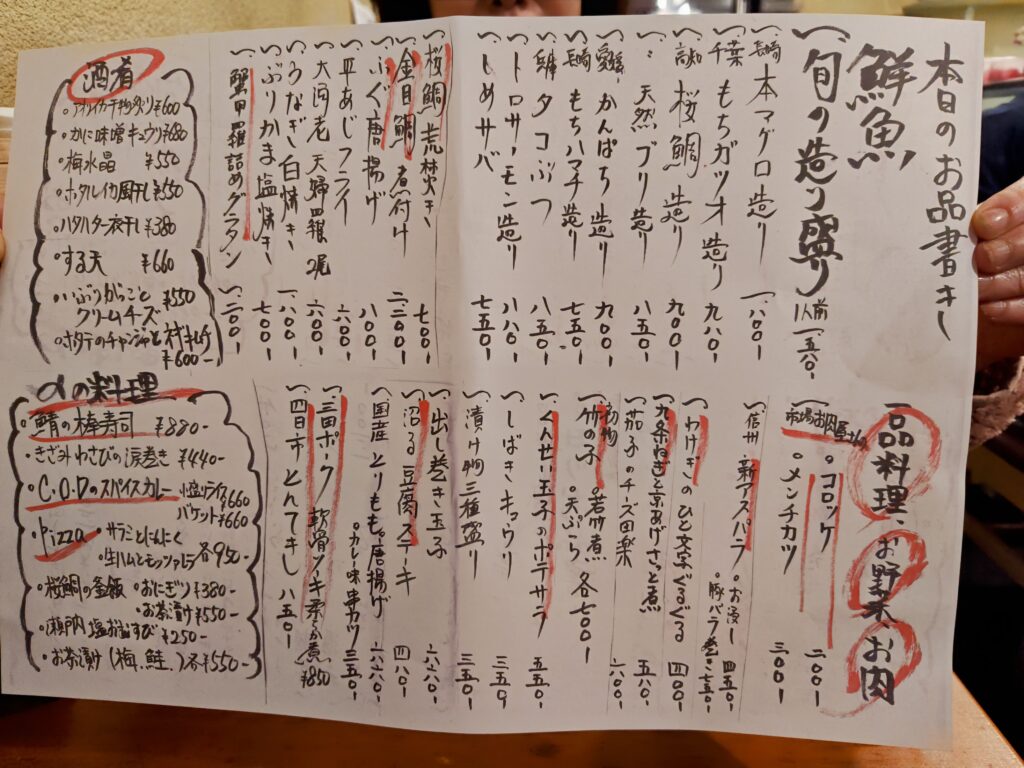 本日のお品書き
鮮魚
一、旬の造り盛り 1人前 一五八〇-
一、長崎 本マグロ造り 一、八〇〇-
一、千葉 もちガツオ造り 九八〇-
一、高知 桜鯛造り 九〇〇-
一、〃 天然ブリ造り 八五〇-
一、愛媛 かんぱち造り 九〇〇-
一、長崎 もちハマチ造り 七五〇-
一、タコぶつ 八五〇-
一、トロサーモン造り 八八〇-
一、しめサバ 七五〇-
一、桜鯛荒焚き 七〇〇-
一、金目鯛煮付け 二、二〇〇-
一、ふぐ唐揚げ 八〇〇-
一、平あじフライ 七〇〇-
一、大海老天婦羅2尾 六〇〇-
一、うなぎ白焼き 一、八〇〇-
一、ぶりかま塩焼き 七〇〇-
一、蟹甲羅詰めグラタン 一、二〇〇-
酒肴
・かに味噌キュウリ ¥680
・梅水晶 ¥550
・ホタルイカ風干し ¥550
・ハタハタ一夜干し ¥380
・する天 ¥660
・いぶりがっこと
クリームチーズ ¥550
・ホタテのチャンジャと
¥600
一品料理、お野菜、お肉
市場お肉屋さんの
・コロッケ 二〇〇-
・メンチカツ 三〇〇-
一、信州新アスパラ ・お浸し 四五〇-
・豚バラ巻き 七五〇-
一、わけぎのひと文字ぐるぐる 四〇〇-
一、九条ねぎと京あげさっと煮 五五〇-
一、茄子のチーズ田楽 六八〇-
一、初物 竹の子 ・若竹煮 ・天ぷら 各七〇〇-
一、くんせい玉子のポテサラ 五五〇-
一、しばきキュウリ 三五〇-
一、漬け物三種盛り 五五〇-
一、出し巻き玉子 六六〇-
一、沼る豆腐ステーキ 四八〇-
一、国産とりもも唐揚げ 六八〇-
・カレー味串カツ 三五〇-
一、三田ポーク軟骨ツキ柔か煮 ¥850
一、四日市とんてきし 八五〇-
αの料理
・鯖の棒寿司 ¥880-
・きざみわさびの涙巻き ¥440-
・C.O.Dのスパイスカレー 小盛りライス ¥660
バケット ¥660
・Pizza サラミとにんにく
・生ハムとモッツァレラ 各950-
・桜鯛の釜飯 ・おにぎり ¥380-
・お茶漬け ¥550-
・瀬戸内塩おむすび ¥250-
・お茶漬け（梅、鮭、）各¥550-